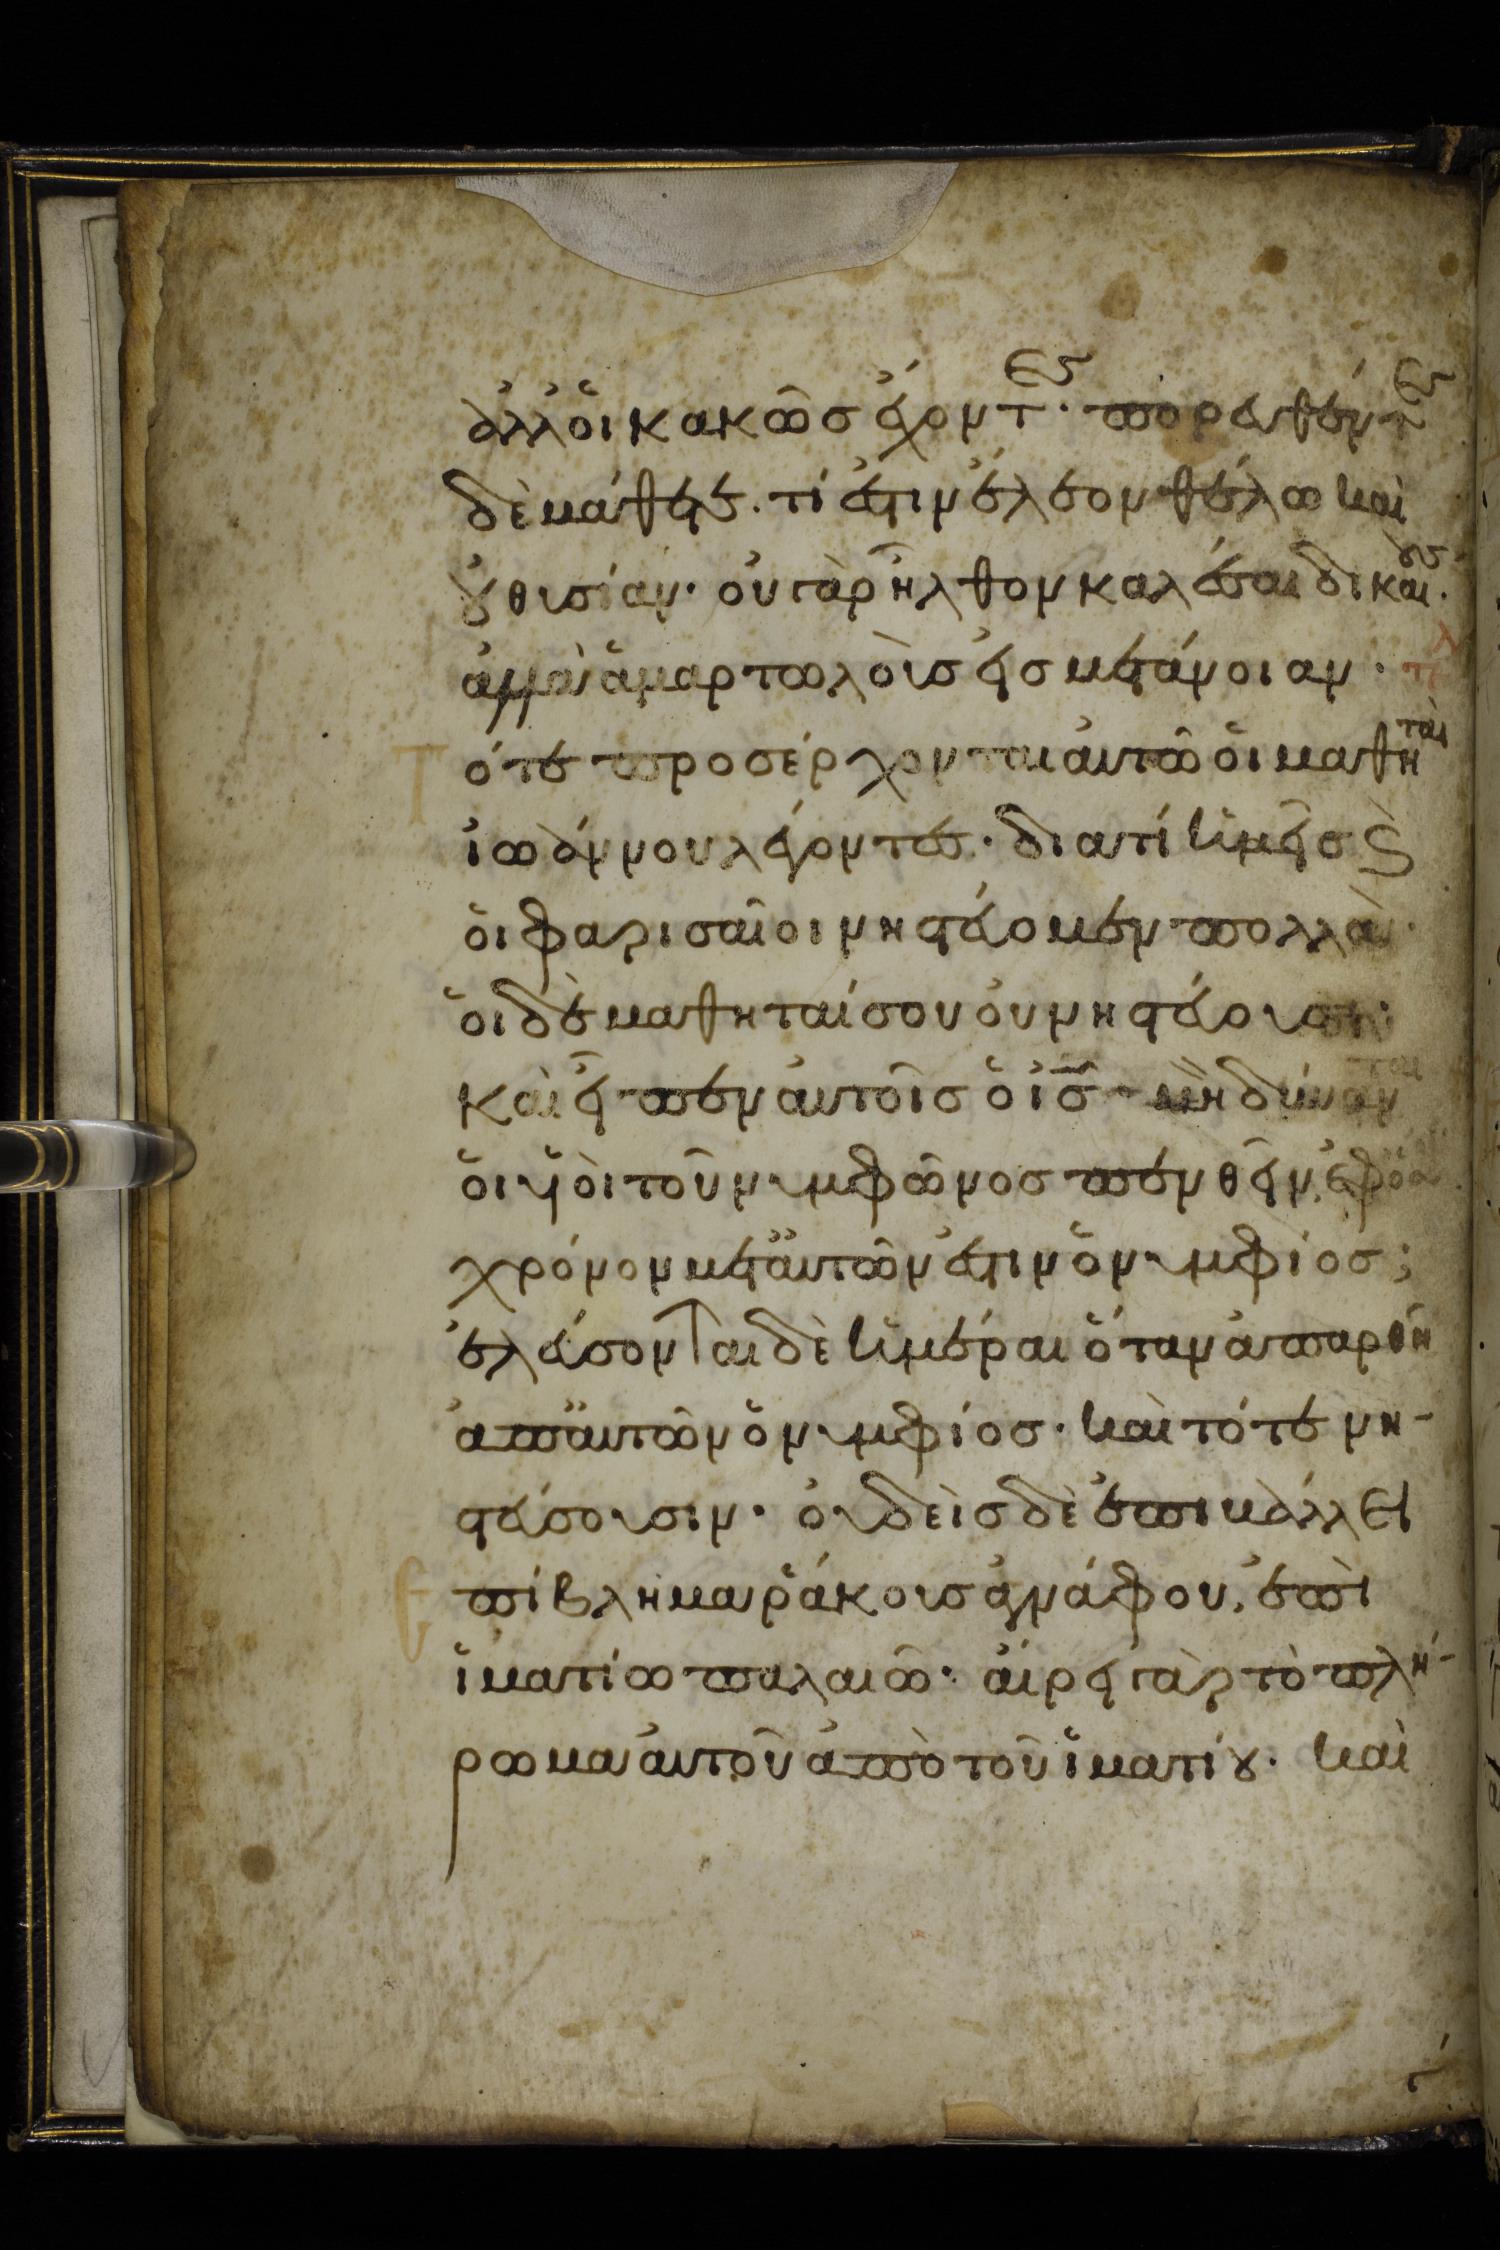 ἀλλ' ὁι κακῶσ ἔχοντες· πορευθέντες
δὲ μάθετε. τί ἐστιν ἔλεον θέλω καὶ
οὐ θυσίαν· οὐ γὰρ ἦλθον καλέσαι δικαίους.
ἀλλὰ ἁμαρτωλοὺσ εἰσ μετάνοιαν·
Τότε προσέρχονται αὐτῶ ὁι μαθηταὶ
ἰωάννου λέγοντεσ· διατί ἡμεῖσ καὶ
ὁι φαρισαῖοι νηστεύομεν πολλὰ·
ὁι δὲ μαθηταί σου οὐ νηστεύουσι·
καὶ εἶπεν αὐτοῖσ ὁ ἰσ· μὴ δύνανται
ὁι υἱοὶ τοῦ νυμφῶνοσ πενθεῖν, ἐφ' ὅσον
χρόνον μετ' αὐτῶν ἐστιν ὁ νυμφίοσ;
ἐλεύσονται δὲ ἡμέραι ὅταν ἀπαρθῆ
ἀπ' αὐτῶν ὁ νυμφίοσ· καὶ τότε νη-
στεύσουσιν· οὐδεὶσ δὲ ἐπιβάλλει
Επίβλημα ῥάκουσ ἀγνάφου, ἐπὶ
ἱματίω παλαιῶ· αἴρει γὰρ τὸ πλή-
ρωμα αὐτοῦ ἀπὸ τοῦ ἱματίου· καὶ